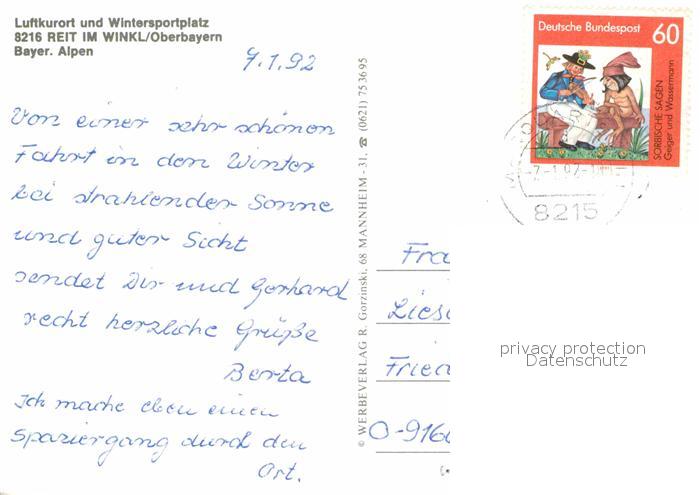 Luftkurort und Wintersportplatz
8216 REIT IM WINKL/Oberbayern
Bayer. Alpen
7.1.92
Von einer sehr schönen
Fahrt in den Winter
bei strahlender Sonne
und guter Sicht
sendet Dir und Gerhard
recht herzliche Grüße
Berta
Ich mache eben einen
Spaziergang durch den
Ort.
© WERBEVERLAG R. Gorzinski, 68 MANNHEIM - 31, ☎ (0621) 75 36 95
Deutsche Bundespost
60
SORBISCHE SAGEN
Geiger und Wassermann
-7.-1.92-
8215
Fra
Liese
Fried
O-916
privacy protection
Datenschutz